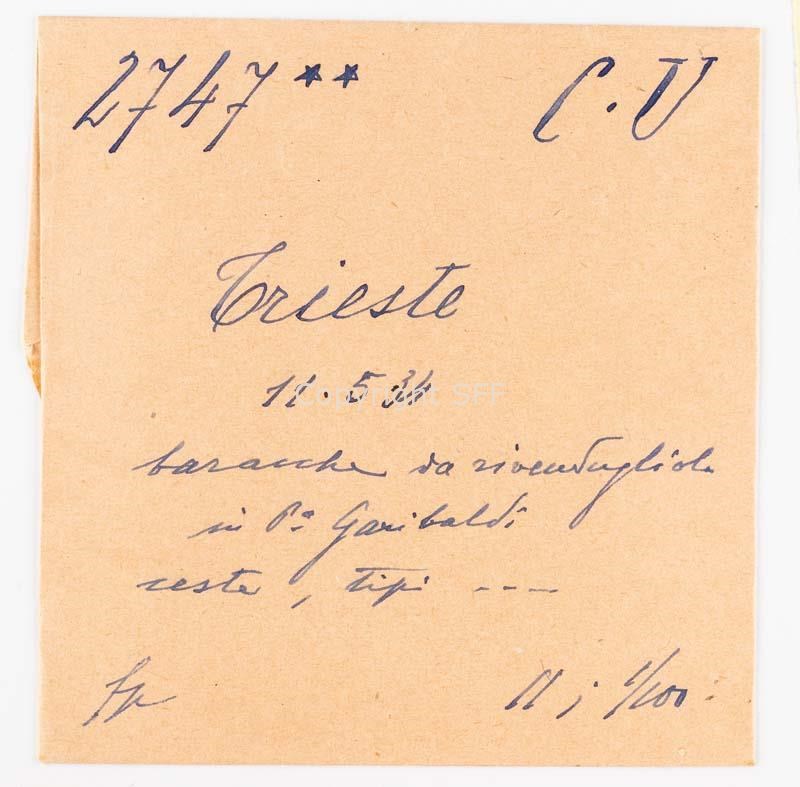 2747 ** C. V
Trieste
11. 5 34
Copyright SFF
baracche da rivendugliola
in Pa Garibaldi
ceste, tipi ----
11 ; 1/100.